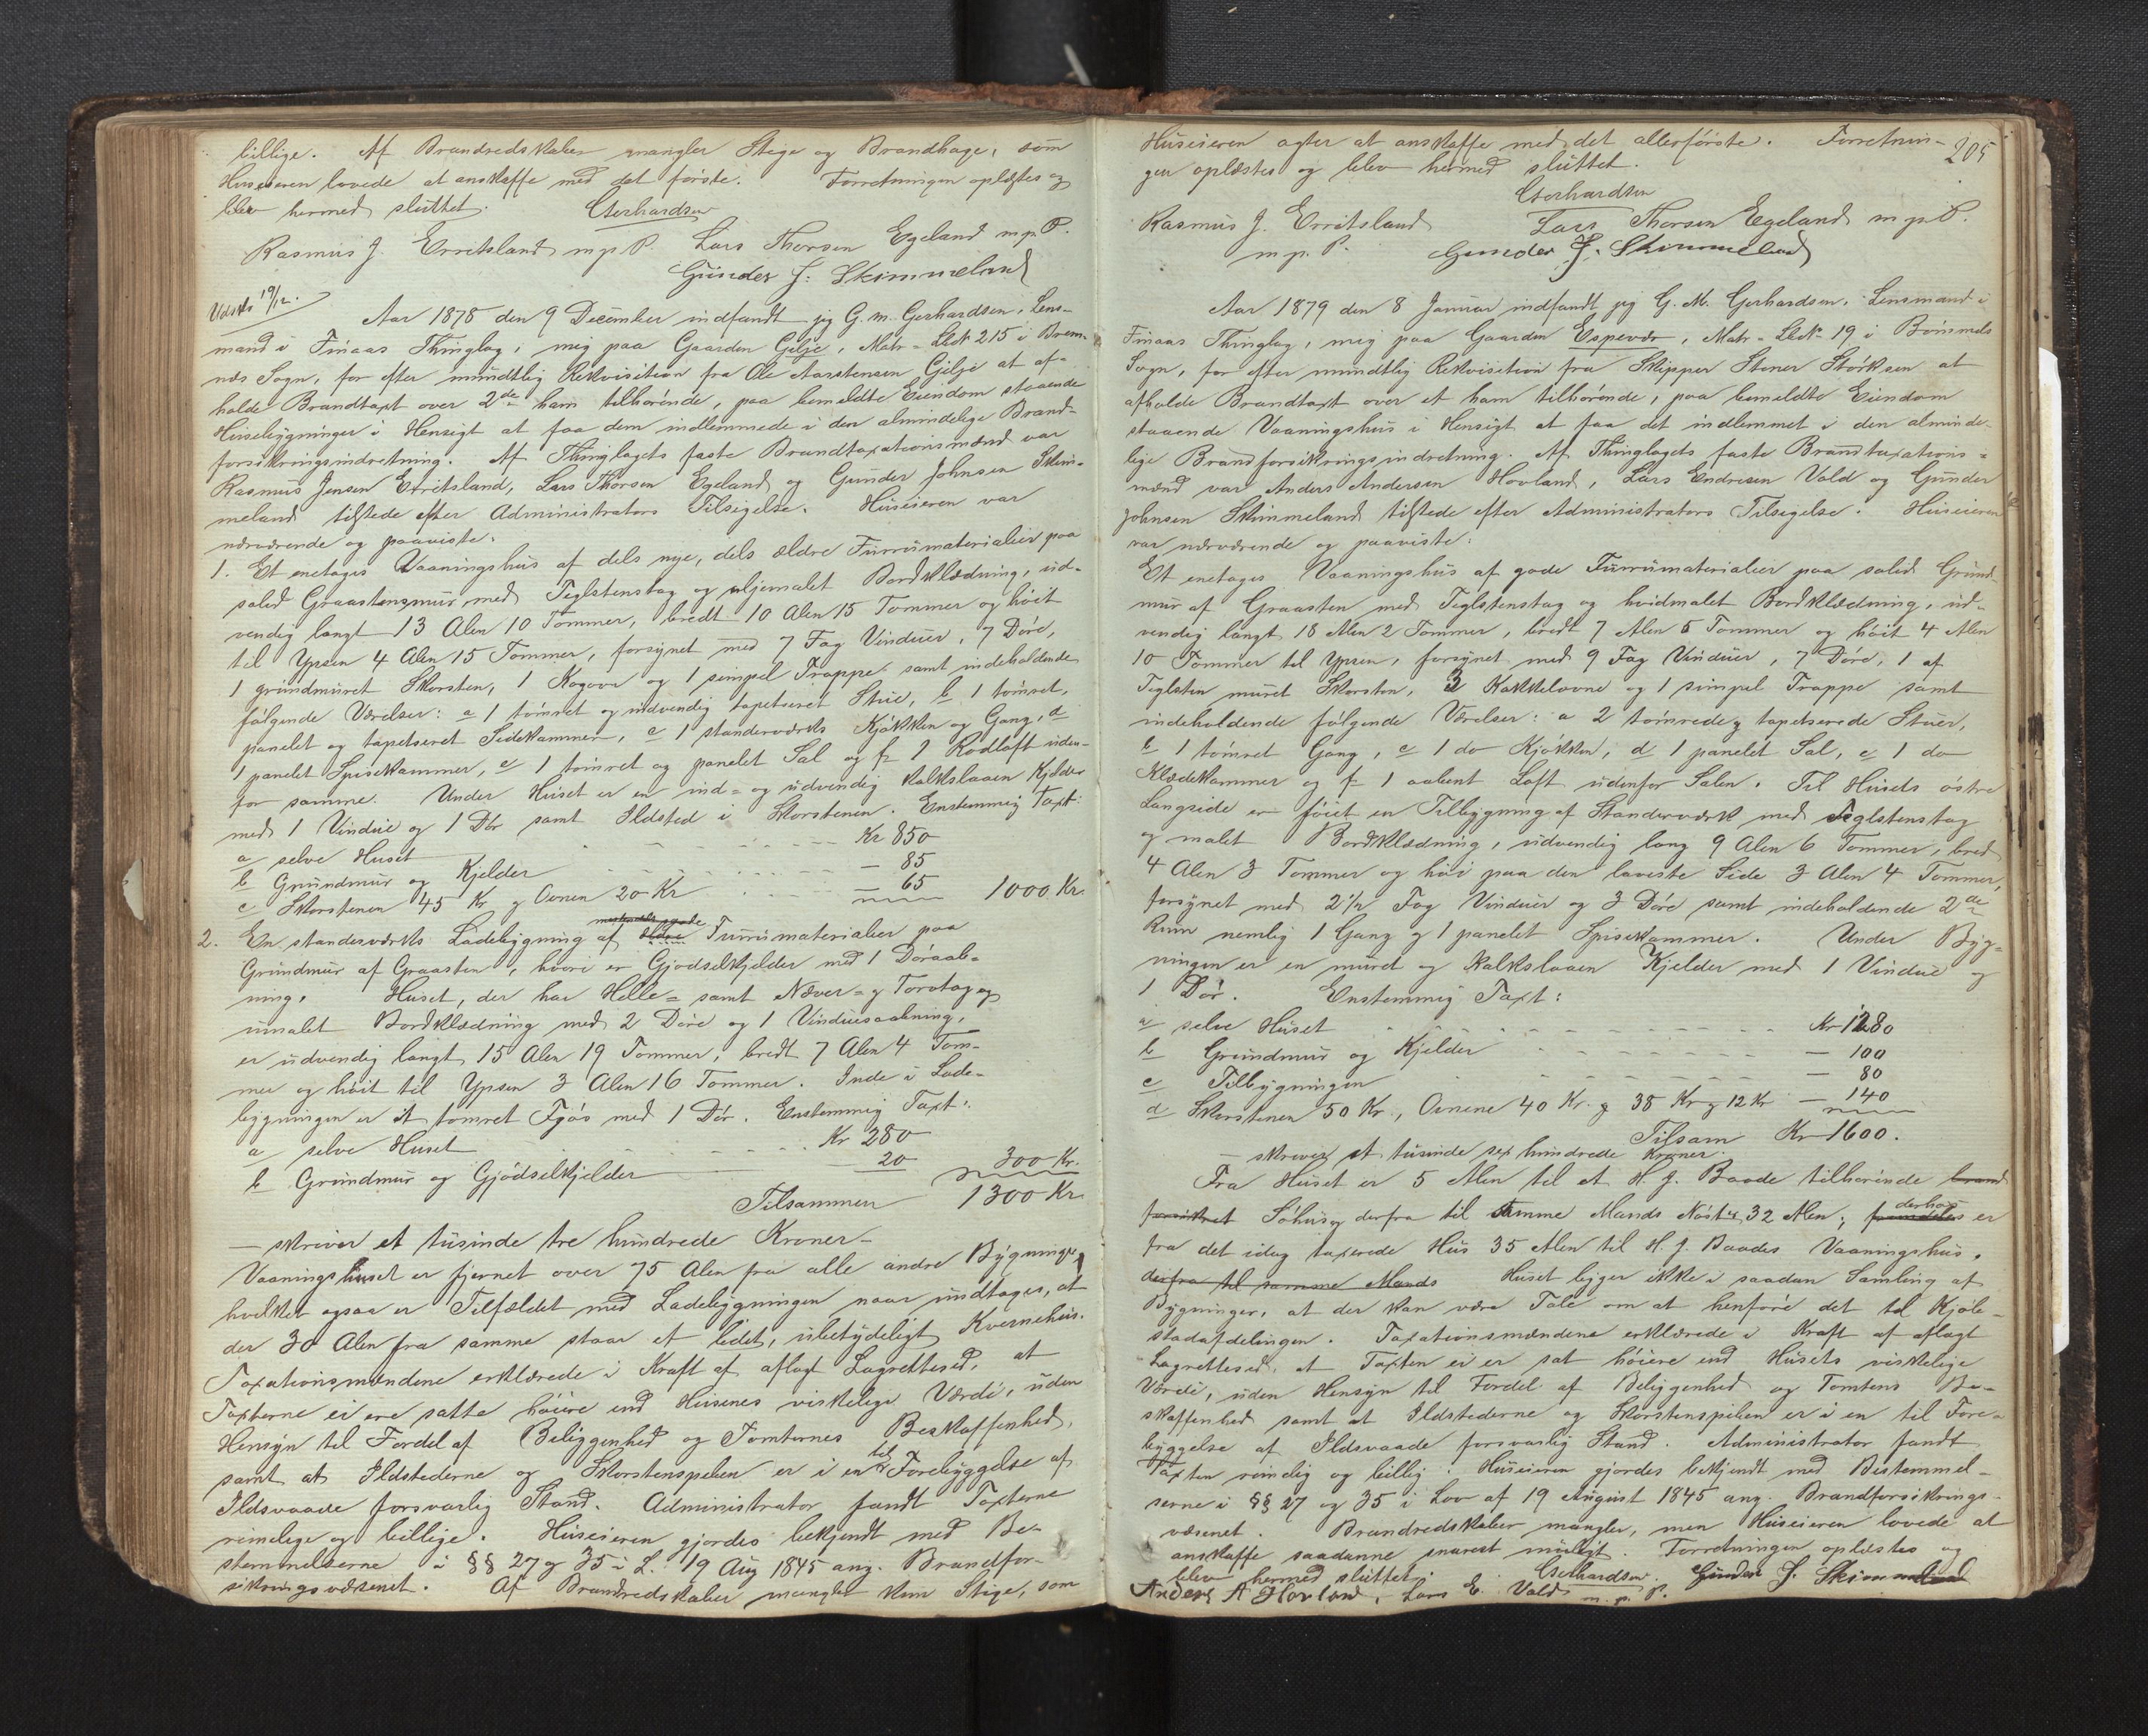 billige. Af Brandredskaber mangler Stige og Brandhage, som
Huseieren lovede at anskaffe med det første. Forretningen oplæstes og
blev hermed sluttet. Gerhardsen
Rasmus J. Erritsland m.p.P. Lars Thorsen Egeland m.p.P.
Gunder J. Skimmeland
Udstk 19/12.
Aar 1878 den 9 December indfandt jeg G. M. Gerhardsen, Lens-
mand i Finaas Thinglag, mig paa Gaarden Gilje, Matr-Løb N 215 i Brem-
næs Sogn, for efter mundtlig Rekvisition fra Ole Aarstensen Gilje at af-
holde Brandtaxt over 2de ham tilhørende, paa bemeldte Eiendom staaende
Husebygninger i Hensigt at faa dem indlemmede i den almindelige Brand-
forsikringsindretning. Af Thinglagets faste Brandtaxationsmænd var
Rasmus Jensen Erritsland, Lars Thorsen Egeland og Gunder Johnsen Skim-
meland tilstede efter Administrators Tilsigelse. Huseieren var
nærværende og paaviste:
1. Et enetages Vaaningshus af dels nye, dels ældre Furrumaterialier paa
solid Graastensmur med Teglstenstag og oljemalet Bordklædning, ud-
vendig langt 13 Alen 10 Tommer, bredt 10 Alen 15 Tommer og høit
til Ypsen 4 Alen 15 Tommer, forsynet med 7 Fag Vinduer, 7 Døre,
1 grundmuret Skorsten, 1 Kogovn og 1 simpel Trappe samt indeholdende
følgende Værelser: a 1 tømret og indvendig tapetseret Stue, b 1 tømret,
panelet og tapetseret Sidekammer, c 1 standerværks Kjøkken og Gang, d
1 panelet Spisekammer, e 1 tømret og panelet Sal og f 1 Rodloft uden-
for samme. Under Huset er en ind- og udvendig kalkslaaen Kjelder
med 1 Vindue og 1 Dør samt Ildsted i Skorstenen. Enstemmig Taxt:
a selve Huset Kr 850
b Grundmur og Kjelder — 85
c Skorstenen 45 Kr og Ovnen 20 Kr — 65 1000 Kr.
2. En standerværks Ladebygning af ældre Furrumaterialier paa
Grundmur af Graasten, hvori er Gjødselkjelder med 1 Døraab-
ning. Huset, der har Helle- samt Næver- og Torvtag og
umalet Bordklædning med 2 Døre og 1 Vinduesaabning,
er udvendig langt 15 Alen 19 Tommer, bredt 7 Alen 4 Tom-
mer og høit til Ypsen 3 Alen 16 Tommer. Inde i Lade-
bygningen er et tømret Fjøs med 1 Dør. Enstemmig Taxt:
a selve Huset Kr 280
b Grundmur og Gjødselkjelder 20 300 Kr.
Tilsammen 1300 Kr.
— skriver et tusinde tre hundrede Kroner —
Vaaningshuset er fjernet over 75 Alen fra alle andre Bygninger,
hvilket ogsaa er Tilfældet med Ladebygningen naar undtages, at
der 30 Alen fra samme staar et lidet, ubetydeligt Kvernehus.
Taxationsmændene erklærede i Kraft af aflagt Lagrettesed, at
Taxterne ei ere satte høiere end Husenes virkelige Værdi, uden
Hensyn til Fordel af Beliggenhed og Tomternes Beskaffenhed,
samt at Ildstederne og Skorstenspiben er i en til Forebyggelse af
Ildsvaade forsvarlig Stand. Administrator fandt Taxterne
rimelige og billige. Huseieren gjordes bekjendt med Be-
stemmelserne i §§ 27 og 35 i L. 19 Aug 1845 ang. Brandfor-
sikringsvæsenet. Af Brandredskaber mangler kun Stige, som
205
Huseieren agter at anskaffe med det allerførste. Forretnin-
gen oplæstes og blev hermed sluttet.
Gerhardsen
Rasmus J. Erritsland Lars Thorsen Egeland m.p.P.
m.p.P. Gunder J. Skimmeland
Aar 1879 den 8 Januar indfandt jeg G. M. Gerhardsen, Lensmand i
Finaas Thinglag, mig paa Gaarden Espevær, Matr-Løb N 19 i Bømmels
Sogn, for efter mundtlig Rekvisition fra Skipper Stener Størksen at
afholde Brandtaxt over et ham tilhørende, paa bemeldte Eiendom
staaende Vaaningshus i Hensigt at faa det indlemmet i den alminde-
lige Brandforsikringsindretning. Af Thinglagets faste Brandtaxations-
mænd var Anders Andersen Hovland, Lars Endresen Vold og Gunder
Johnsen Skimmeland tilstede efter Administrators Tilsigelse. Huseieren
var nærværende og paaviste:
Et enetages Vaaningshus af gode Furrumaterialier paa solid Grund-
mur af Graasten med Teglstenstag og hvidmalet Bordklædning, ud-
vendig langt 18 Alen 2 Tommer, bredt 7 Alen 5 Tommer og høit 4 Alen
10 Tommer til Ypsen, forsynet med 9 Fag Vinduer, 7 Døre, 1 af
Teglsten muret Skorsten, 3 Kakkelovne og 1 simpel Trappe samt
indeholdende følgende Værelser: a 2 tømrede og tapetserede Stuer,
b 1 tømret Gang, c 1 do Kjøkken, d 1 panelet Sal, e 1 do
Klædekammer og f 1 aabent Loft udenfor Salen. Til Husets østre
Langside er føiet en Tilbygning af Standerværk med Teglstenstag
og malet Bordklædning, udvendig lang 9 Alen 6 Tommer, bred
4 Alen 3 Tommer og høi paa den laveste Side 3 Alen 4 Tommer,
forsynet med 2 1/2 Fag Vinduer og 3 Døre samt indeholdende 2de
Rum nemlig 1 Gang og 1 panelet Spisekammer. Under Byg-
ningen er en muret og kalkslaaen Kjelder med 1 Vindue og
1 Dør. Enstemmig Taxt:
a selve Huset Kr 1280
b Grundmur og Kjelder — 100
c Tilbygningen — 80
d Skorstenen 50 Kr., Ovnene 40 Kr. og 38 Kr og 12 Kr — 140
Tilsam Kr 1600.
— skriver et tusinde sex hundrede Kroner.
Fra Huset er 5 Alen til et H. J. Baade tilhørende brand
forsikret Søhus og derfra til samme Mands Nøst 32 Alen; derhos er
fra det idag taxerede Hus 35 Alen til H. J. Baades Vaaningshus.
derfra til samme Mands Huset ligger ikke i saadan Samling af
Bygninger, at der kan være Tale om at henføre det til Kjøb-
stadafdelingen. Taxationsmændene erklærede i Kraft af aflagt
Lagrettesed, at Taxten ei er sat høiere end Husets virkelige
Værdi, uden Hensyn til Fordel af Beliggenhed og Tomtens Be-
skaffenhed samt at Ildstederne og Skorstenspiben er i en til Fore-
byggelse af Ildsvaade forsvarlig Stand. Administrator fandt
Taxten rimelig og billig. Huseieren gjordes bekjendt med Bestemmel-
serne i §§ 27 og 35 i Lov af 19 August 1845 ang. Brandforsikrings-
væsenet. Brandredskaber mangler, men Huseieren lovede at
anskaffe saadanne snarest muligt. Forretningen oplæstes og
blev hermed sluttet. Gerhardsen. Gunder J. Skimmeland
Anders A Hovland, Lars E. Vold m.p.P.